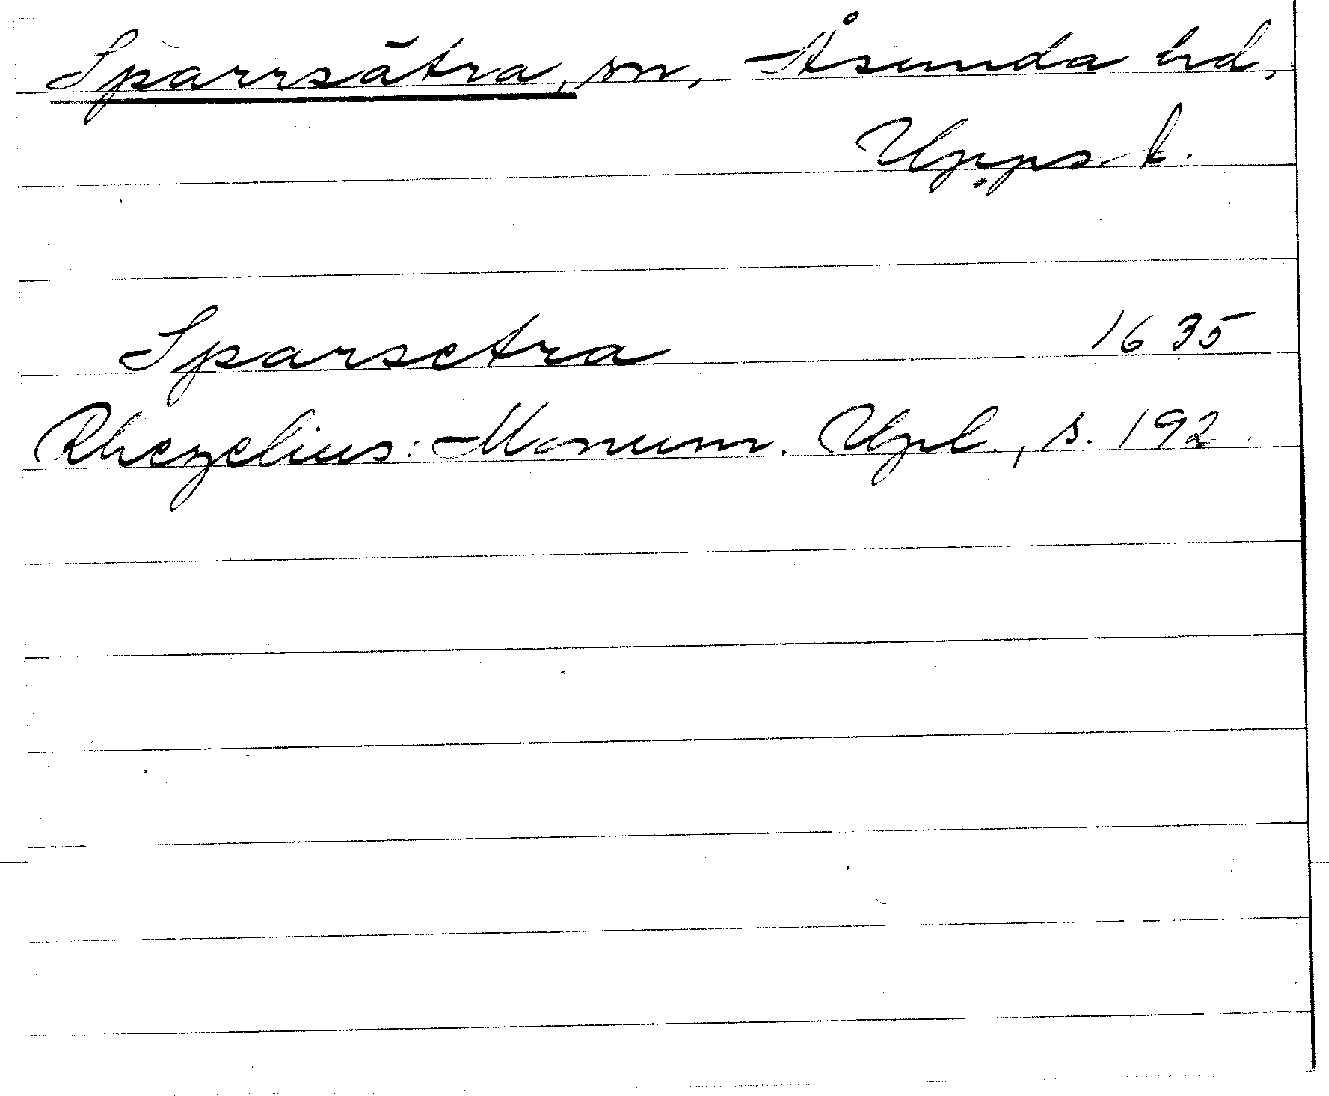 Sparrsätra, sn, Åsunda hd,
Upps. l.
Sparsetra 1635
Rhezelius: Monum. Upl., s. 192.